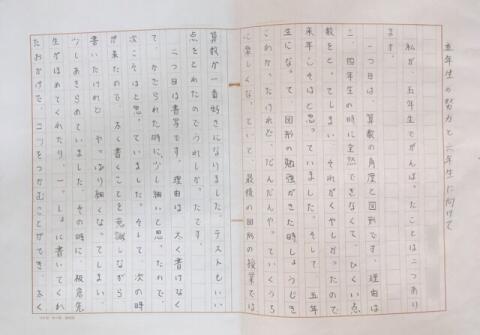 五年生の努力と六年生に向けて
私が、五年生でがんばったことは二つあり
ます。
一つ目は、算数の角度と図形です。理由は
二、四年生の時に全然できなくて、ひくい点
数をとってしまい、それがくやしかったので
来年こそはと思っていました。そして、五年
生になって、図形の勉強がきた時しょうじき
こわかったけれど、だんだんやっていくうち
に楽しくなっていて、最後の図形の授業では
算数が一番好きになりました。テストもいい
点をとれたのでうれしかったです。
二つ目は書写です。理由は、太く書けなく
て、かざられた時に少し細いと思ったので、
次こそはと思っていました。そして、次の時
が来たので、太く書くことを意識しながら
書いたけれど、やっぱり細くなってしまい、
少しあきらめていました。その時に、板倉先
生がほめてくれたり、一しょに書いてくれ
たおかげで、コツをつかむことができ、太く